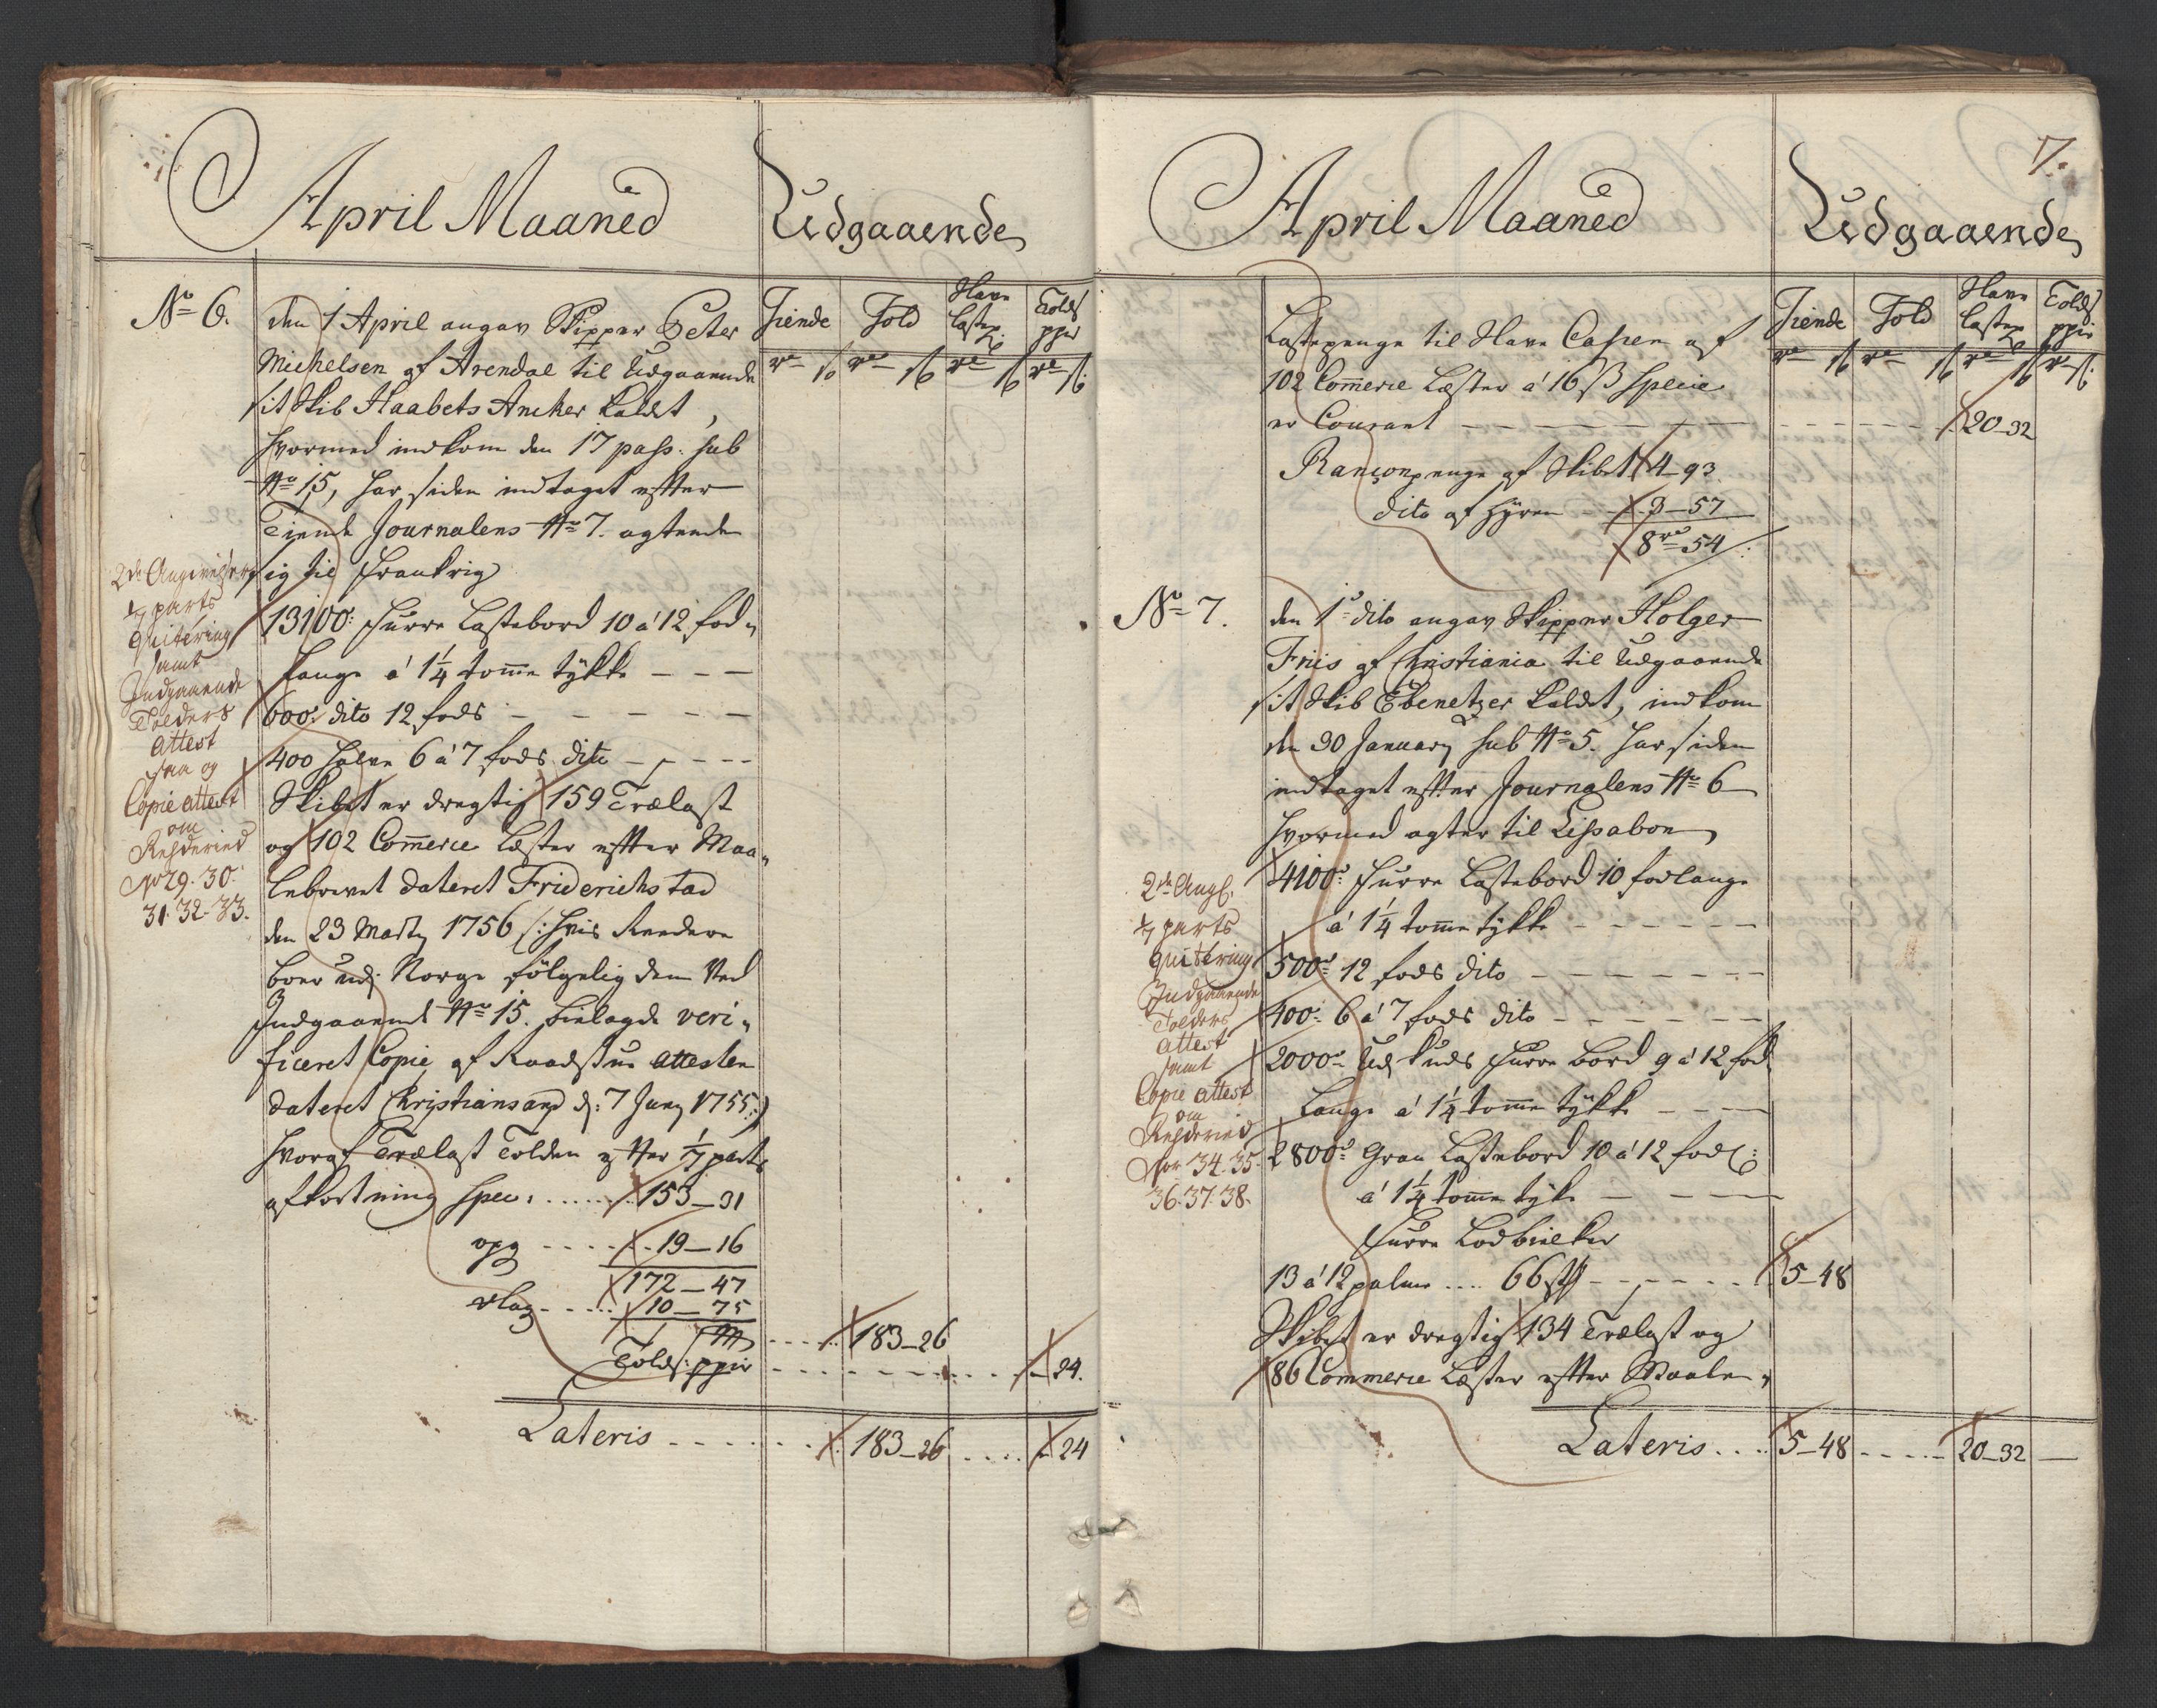 April Maaned Udgaaende
Tiende Told Havne Lastep. Told Sppir
rd s rd s rd s rd s
No 6. den 1 April angav Skipper Peter
Michelsen af Arendal til Udgaaende
sit Skib Haabets Ancher kaldet,
hvormed indkom den 17 pass: sub
No 15, har siden indtaget efter
Tiende Journalens No 7. agtende
sig til Frankrig
13100: furre Lastebord 10 a 12 fod
lange a 1 1/4 tomme tykke - - -
600: dito 12 fods - - - - -
400 halve 6 a 7 fods dito - - - -
Skibet er drægtig 159 Trælast
og 102 Commerce Læster efter Maa„
lebrevet dateret Friderichstad
den 23 Marty 1756 /: hvis Reedere
boer udj Norge følgelig dem Ved
Indgaaende No 15. bielagde veri„
ficeret Copie af Raadstue attesten
dateret Christiansand d: 7 Juny 1755 :/
hvoraf Trælast Tolden efter 1/7 parts
afkortning spec: ...... 153 - 31
opg - - - - 19 - 16
172 - 47
vlag - - - - 10 - 75
- - - - 183 - 26
Told: Sppir - - - - - - - - 24.
Lateris - - - - - - 183 - 26 .... 24
2de Angivelser
1/7 parts
Quitering
samt
Indgaaende
Tolders
Attest
saa og
Copie attest
om
Rehderied
No 29. 30.
31. 32. 33.
April Maaned Udgaaende 7.
Tiende Told Havne Lastep Told Sppir
rd s rd s rd s rd s
Lastepenge til Havne Cassen af
102 Commerce Læster a 16 ß specie
er Courant - - - - - - - - 20 - 32
Ranconpenge af Skibet 4 - 93
dito af Hyren - - 3 - 57
8 rd 54 /:
No 7. den 1de dito angav Skipper Holger
Friis af Christiania til Udgaaende
sit Skib Ebenetzer kaldet, indkom
den 30 January sub No 5. har siden
indtaget efter Journalens No 6
hvormed agter til Lissabon
4100: furre Lastebord 10 fod lange
a 1 1/4 tomme tykke - - - - - -
500: 12 fods dito - - - - - - -
400: 6 a 7 fods dito - - - - - -
2000: Udskuds furre Bord 9 a 12 fod
Lange a 1 1/4 tomme tykke - - -
2800: Gran Lastebord 10 a 12 fod l:
a 1 1/4 tomme tyke - - - -
furre Lodbielker
13 a 12 palme .... 66 st - - - - - 5 - 48
Skibet er drægtig 134 Trælast og
86 Commerce Læster efter Maale„
Lateris .... 5 - 48 - - - - 20 - 32 -
2de Angl.
1/7 parts
Quitering
Indgaaende
Tolders
attest
samt
Copie attest
om
Rehderied
No 34. 35.
36. 37. 38.